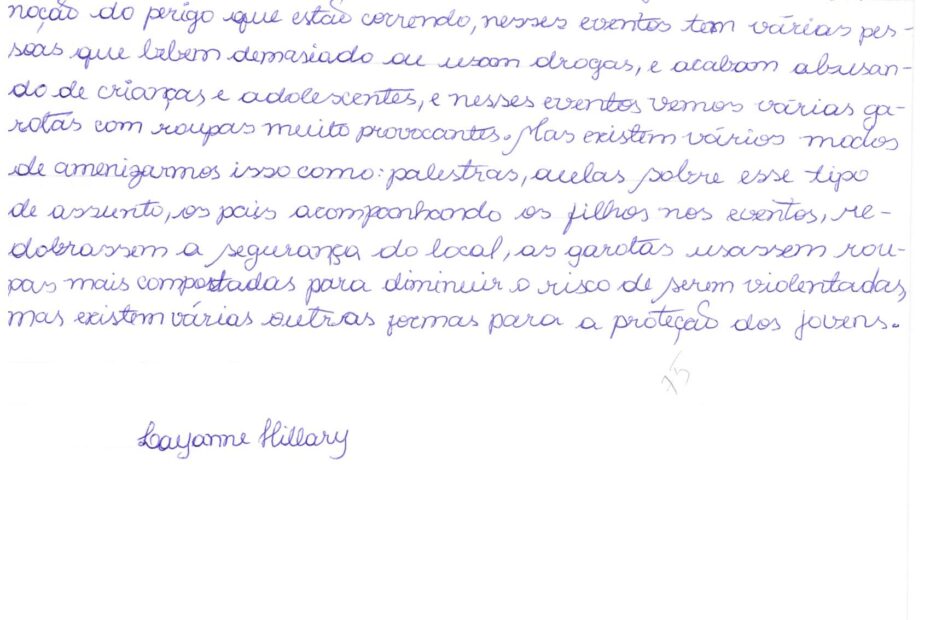 noção do perigo que estão correndo, nesses eventos tem várias pes-
soas que bebem demasiado ou usam drogas, e acabam abusan-
do de crianças e adolescentes, e nesses eventos vemos várias ga-
rotas com roupas muito provocantes. Mas existem vários modos
de amenizarmos isso como: palestras, aulas sobre esse tipo
de assunto, os pais acompanhando os filhos nos eventos, re-
dobrassem a segurança do local, as garotas usassem rou-
pas mais compostadas para diminuir o risco de serem violentadas,
mas existem várias outras formas para a proteção dos jovens.
Layanne Hillary